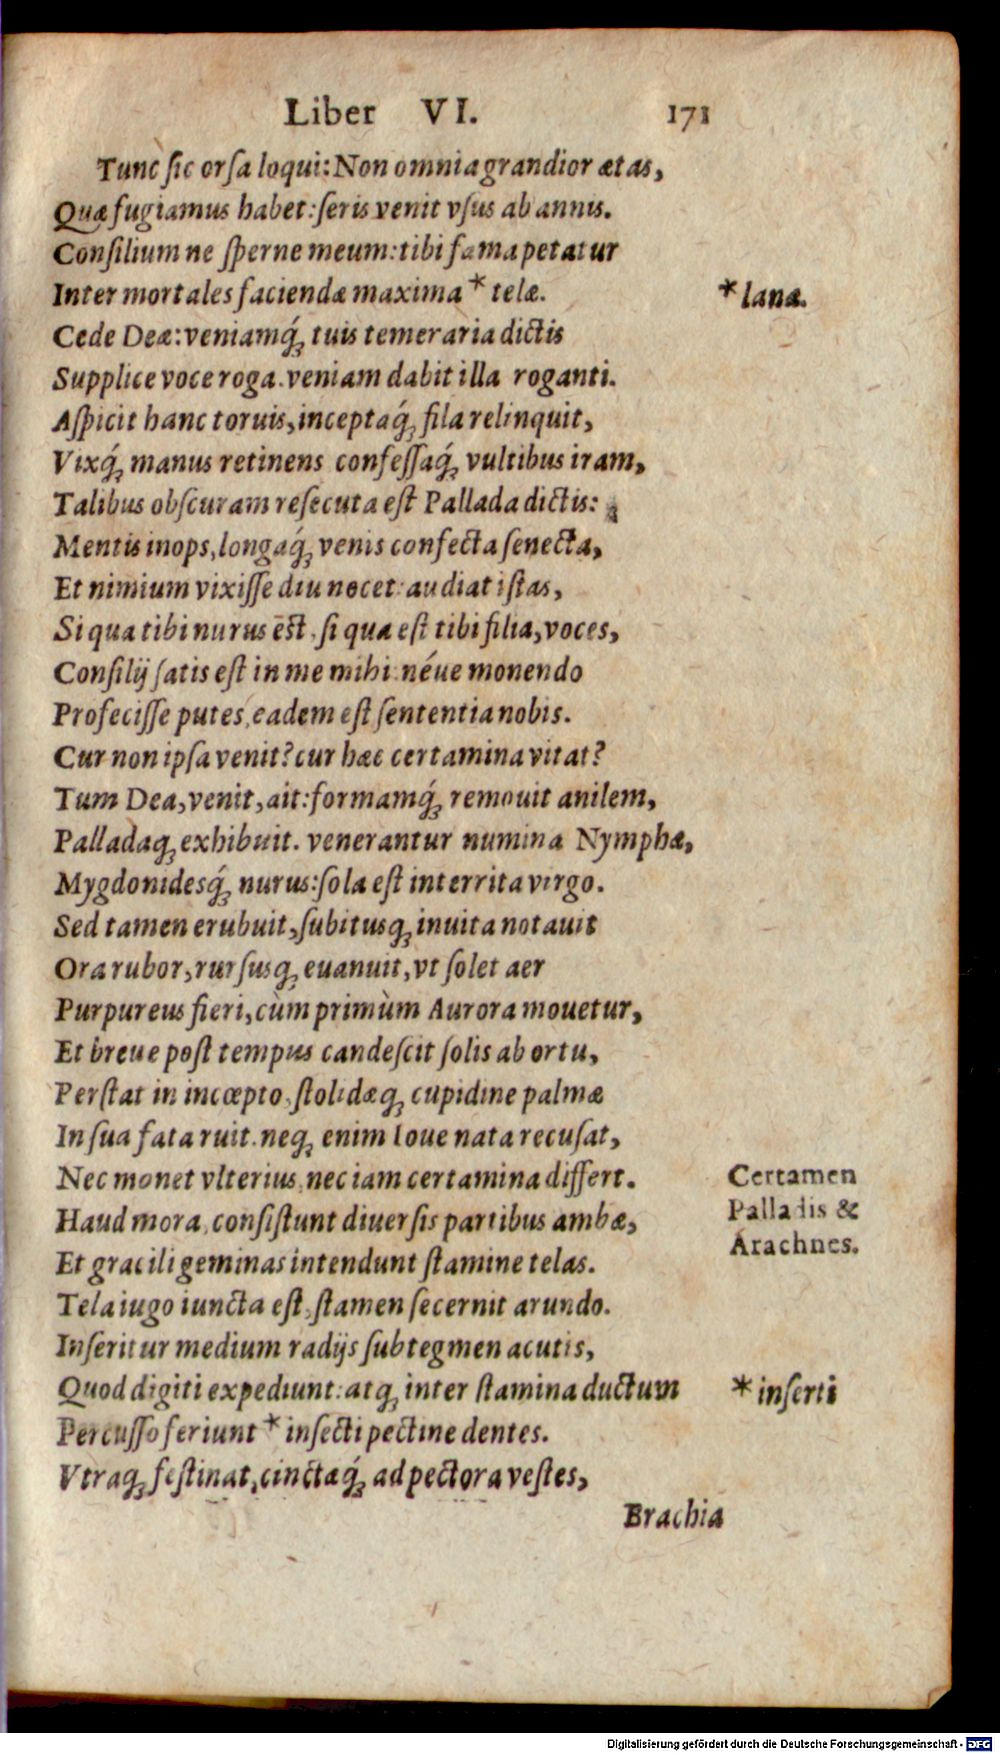 Liber VI. 171
Tunc sic orsa loqui: Non omnia grandior ætas,
Quæ fugiamus habet: seris venit vsus ab annis.
Consilium ne sperne meum: tibi fama petatur
Inter mortales faciendæ maxima * telæ.
* lanæ.
Cede Deæ: veniamq́; tuis temeraria dictis
Supplice voce roga. veniam dabit illa roganti.
Aspicit hanc toruis, inceptaq́; fila relinquit,
Vixq́; manus retinens confessaq́; vultibus iram,
Talibus obscuram resecuta est Pallada dictis:
Mentis inops, longaq́; venis confecta senecta,
Et nimium vixisse diu nocet: audiat istas,
Si qua tibi nurus ēst, si qua est tibi filia, voces,
Consilij satis est in me mihi: néue monendo
Profecisse putes, eadem est sententia nobis.
Cur non ipsa venit? cur hæc certamina vitat?
Tum Dea, venit, ait: formamq́; remouit anilem,
Palladaq; exhibuit. venerantur numina Nymphæ,
Mygdonidesq́; nurus: sola est interrita virgo.
Sed tamen erubuit, subitusq; inuita notauit
Ora rubor, rursusq; euanuit, vt solet aer
Purpureus fieri, cùm primùm Aurora mouetur,
Et breue post tempus candescit solis ab ortu,
Perstat in incœpto, stolidæq; cupidine palmæ
In sua fata ruit. neq; enim Ioue nata recusat,
Nec monet vlterius, nec iam certamina differt.
Certamen
Palladis &
Arachnes.
Haud mora, consistunt diuersis partibus ambæ,
Et gracili geminas intendunt stamine telas.
Tela iugo iuncta est, stamen secernit arundo.
Inseritur medium radijs subtegmen acutis,
Quod digiti expediunt: atq; inter stamina ductum
* inserti
Percusso feriunt * insecti pectine dentes.
Vtraq; festinat, cinctæq́; ad pectora vestes,
Brachia
Digitalisierung gefördert durch die Deutsche Forschungsgemeinschaft - DFG